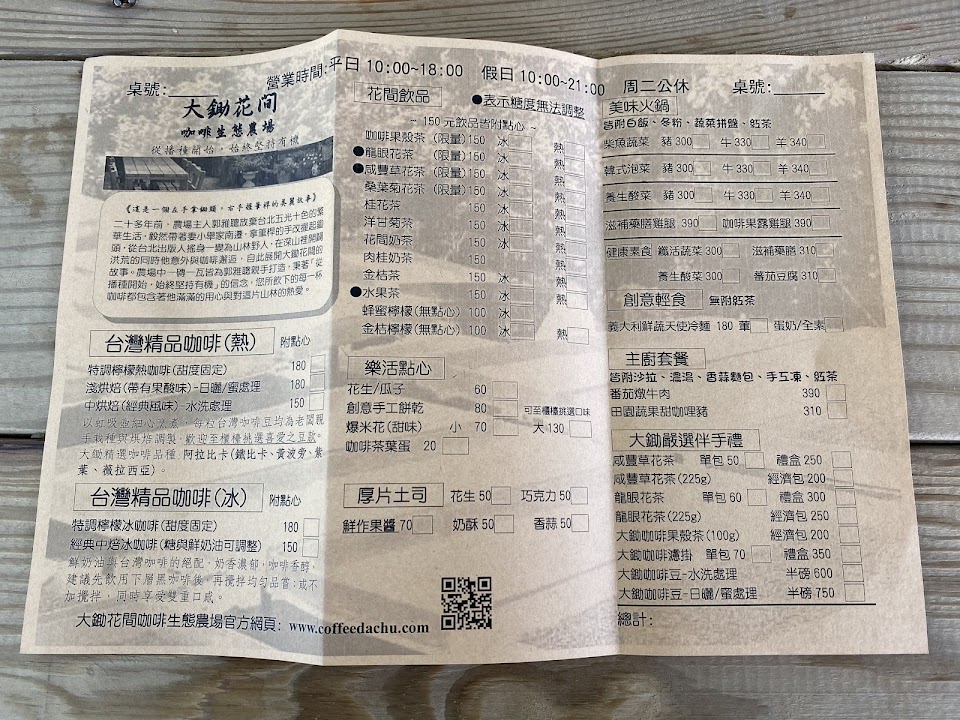 桌號:
營業時間:平日 10:00~18:00 假日 10:00~21:00 周二公休 桌號:
大鋤花間
咖啡生態農場
從播種開始，始終堅持有機
《這是一個左手拿鋤頭，右手握筆桿的美麗故事》
二十多年前，農場主人郭雅聰放棄台北五光十色的繁
華生活，毅然帶著妻小舉家南遷，拿筆桿的手改握起鋤
頭，從台北出版人搖身一變為山林野人，在深山裡開闢
洪荒的同時他意外與咖啡邂逅，自此展開大鋤花間的
故事。農場中一磚一瓦皆為郭雅聰親手打造，秉著「從
播種開始，始終堅持有機」的信念，您所飲下的每一杯
咖啡都包含著他滿滿的用心與對這片山林的熱愛。
台灣精品咖啡(熱) 附點心
特調檸檬熱咖啡(甜度固定) 180
淺烘焙(帶有果酸味)-日曬/蜜處理 180
中烘焙(經典風味)-水洗處理 150
手我種與烘焙調製，歡迎至櫃檯挑選喜愛之豆款。
大鋤精選咖啡品種 阿拉比卡(鐵比卡、黃波旁、紫
葉、薇拉西亞)。
台灣精品咖啡(冰) 附點心
特調檸檬冰咖啡(甜度固定) 180
經典中焙冰咖啡(糖與鮮奶油可調整) 150
鮮奶油與台灣咖啡的絕配，奶香濃郁，咖啡香醇，
建議先飲用下層黑咖啡後，再攪拌均勻品嘗；或不
加攪拌，同時享受雙重口感。
大鋤花間咖啡生態農場官方網頁: www.coffeedachu.com
花間飲品 ●表示糖度無法調整
~ 150 元飲品皆附點心 ~
咖啡果殼茶 (限量)150 冰 熱
●龍眼花茶 (限量)150 冰 熱
●咸豐草花茶(限量)150 冰 熱
桑葉菊花茶 (限量)150 冰 熱
桂花茶 150 冰 熱
洋甘菊茶 150 熱
花間奶茶 150 熱
肉桂奶茶 150 熱
金桔茶 150 冰 熱
●水果茶 150 冰 熱
蜂蜜檸檬(無點心) 100 冰
金桔檸檬(無點心) 100 冰 熱
樂活點心
花生/瓜子 60
創意手工餅乾 80 可至櫃檯挑選口味
爆米花(甜味) 小 70 大 130
咖啡茶葉蛋 20
厚片土司 花生 50 巧克力 50
鮮作果醬 70 奶酥 50 香蒜 50
美味火鍋
皆附白飯、冬粉、蔬菜拼盤、紅茶
柴魚蔬菜 豬300 牛330 羊340
韓式泡菜 豬300 牛330 羊340
養生酸菜 豬300 牛330 羊340
滋補藥膳雞腿 390 咖啡果露雞腿390
健康素食 纖活蔬菜300 滋補藥膳310
養生酸菜 300 番茄豆腐 310
創意輕食 無附紅茶
義大利鮮蔬天使冷麵 180 葷 蛋奶/全素
主廚套餐
皆附沙拉、濃湯、香蒜麵包、手工凍、紅茶
番茄燉牛肉 390
田園蔬果甜咖哩豬 310
大鋤嚴選伴手禮
咸豐草花茶 單包 50 禮盒 250
咸豐草花茶(225g) 經濟包 200
龍眼花茶 單包 60 禮盒 300
龍眼花茶(225g) 經濟包 250
大鋤咖啡果殼茶(100g) 經濟包 200
大鋤咖啡濾掛 單包 70 禮盒 350
大鋤咖啡豆-水洗處理 半磅 600
大鋤咖啡豆-日曬/蜜處理 半磅 750
總計: